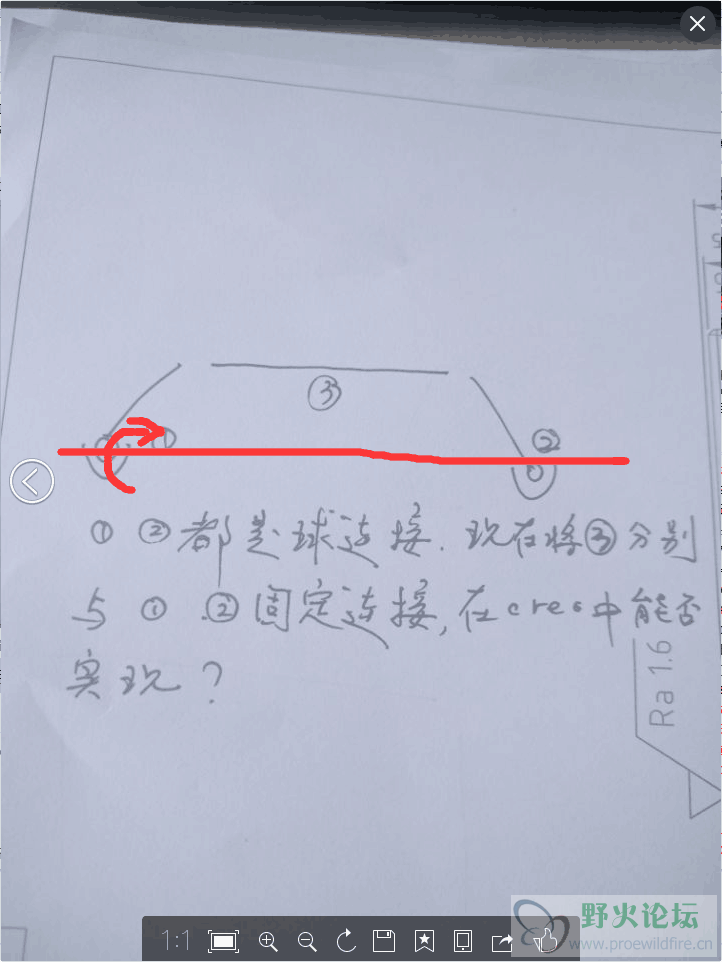 ③
①
②
① ②都是球连接.现在将③分别
与 ① ②固定连接,在creo中能否
实现?
Ra 1.6
1:1
野火论坛
www.proewildfire.cn